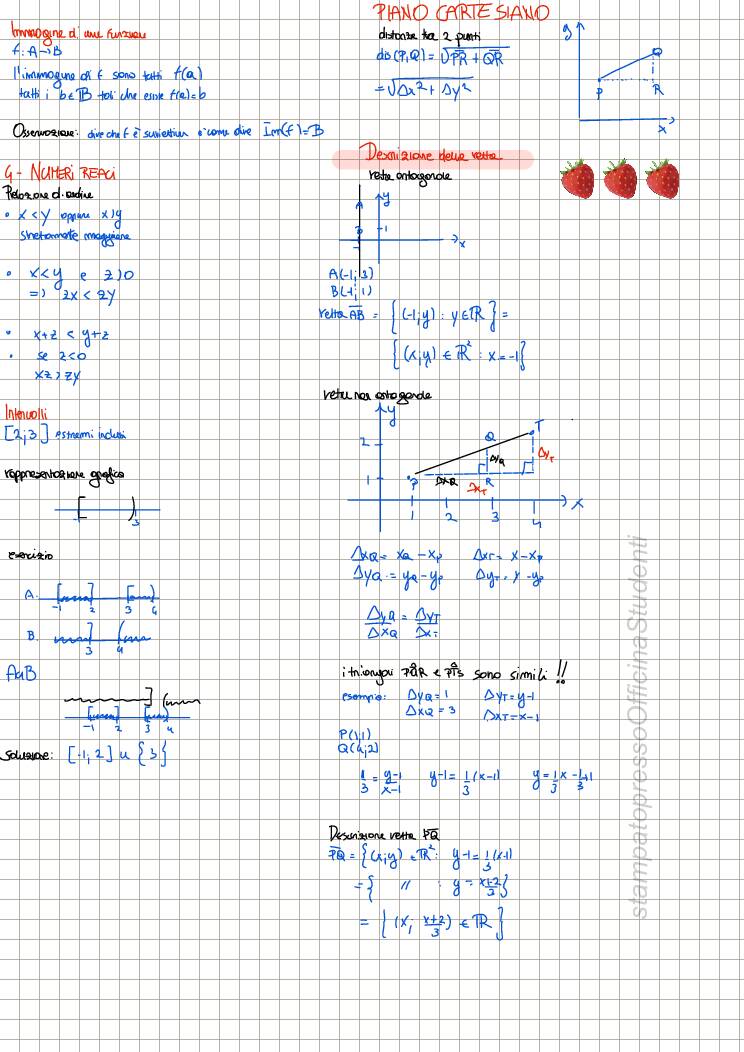 Immagine di una funzione
f: A→B
l'immagine di f sono tutti f(a)
tutti i b∈B tali che esiste f(a)=b
Osservazione: dire che f è suriettiva è come dire Im(f)=B
4 - NUMERI REALI
Relazione d'ordine
• x<y oppure x>y
strettamente maggiore
• x<y e z>0
=> zx < zy
• x+z < y+z
• se z<0
xz>zy
Intervalli
[2;3] estremi inclusi
rappresentazione grafica
3
esercizio
A.
-1 2 3 4
B.
3 4
A∩B
-1 2 3 4
Soluzione: [-1; 2] ∪ {3}
PIANO CARTESIANO
distanza tra 2 punti
dis(P,Q) = √PR + QR
= √Δx²+Δy²
y
Q
P R
x
Descrizione della retta
retta ortogonale
y
A
B 1
x
A(-1; 3)
B(-1; 1)
retta AB = {(-1;y) : y∈R} =
{(x;y) ∈ R² : x=-1}
retta non ortogonale
y
T
2 Q
ΔyQ ΔyT
1 P
ΔxQ R
ΔxT
1 2 3 4 x
ΔxQ = xQ - xP ΔxT = x - xP
ΔyQ = yQ - yP ΔyT = y - yP
ΔyQ/ΔxQ = ΔyT/ΔxT
i triangoli PQR e PTS sono simili!!
esempio: ΔyQ=1 ΔyT=y-1
ΔxQ=3 ΔxT=x-1
P(1;1)
Q(4;2)
1/3 = y-1/x-1 y-1=1/3(x-1) y=1/3x-1/3+1
Descrizione retta PQ
PQ = {(x;y) ∈R²: y-1=1/3(x-1)
={ // : y= x+2/3}
= {(x; x+2/3) ∈ R}
stampatopressoOfficinaStudenti